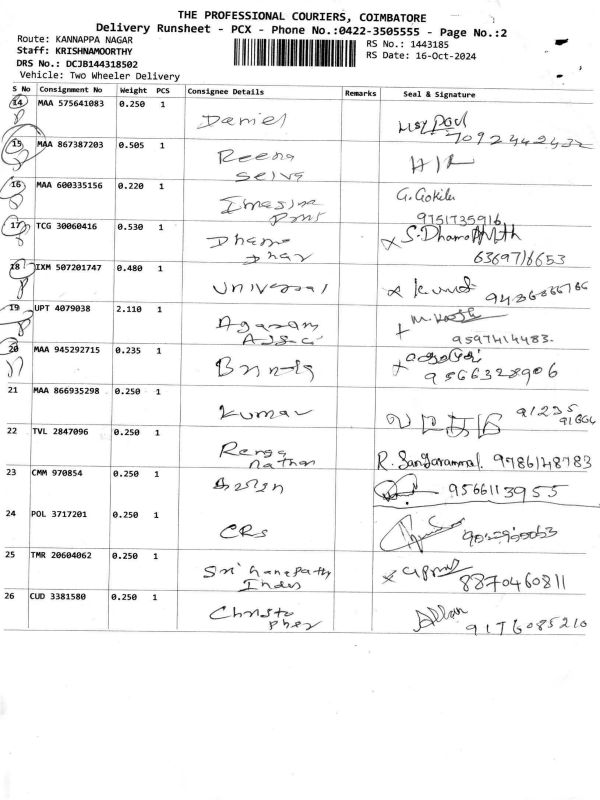 THE PROFESSIONAL COURIERS, COIMBATORE
Delivery Runsheet - PCX - Phone No.:0422-3505555 - Page No.:2
Route: KANNAPPA NAGAR
RS No.: 1443185
Staff: KRISHNAMOORTHY
RS Date: 16-Oct-2024
DRS No.: DCJB144318502
Vehicle: Two Wheeler Delivery
S No Consignment No Weight PCS Consignee Details Remarks Seal & Signature
14 MAA 575641083 0.250 1 Daniel
7092442432
15 MAA 867387203 0.505 1 Reena
Selva
16 MAA 600335156 0.220 1 G. Gokila
9751735916
17 TCG 30060416 0.530 1 Dhamo
dhar
6369716653
18 IXM 507201747 0.480 1 Universal
19 UPT 4079038 2.110 1 Agaram
9597414483.
20 MAA 945292715 0.235 1
9566328906
21 MAA 866935298 0.250 1 Kumar
91235
22 TVL 2847096 0.250 1 Renga
nathan R. Sangarammal. 9786148783
23 CMM 970854 0.250 1 9566113955
24 POL 3717201 0.250 1 CRS
25 TMR 20604062 0.250 1 Sri Ganapathy
Indus 8870460811
26 CUD 3381580 0.250 1 Christo
pher Allan
9176085210